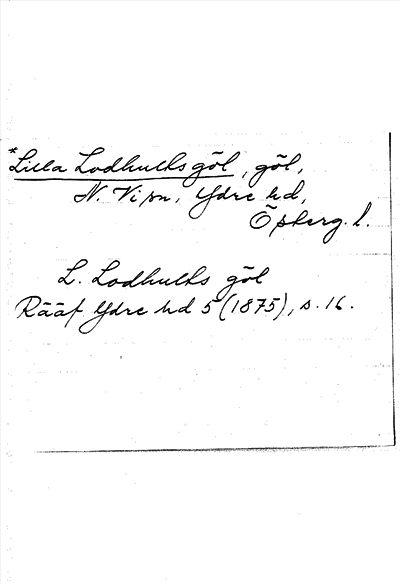 *Lilla Lodhultsgöl, göl,
N. Vi sn, Ydre hd,
Ög. l.
L. Lodhults göl
Rääf Ydre hd 5 (1875), s. 16.